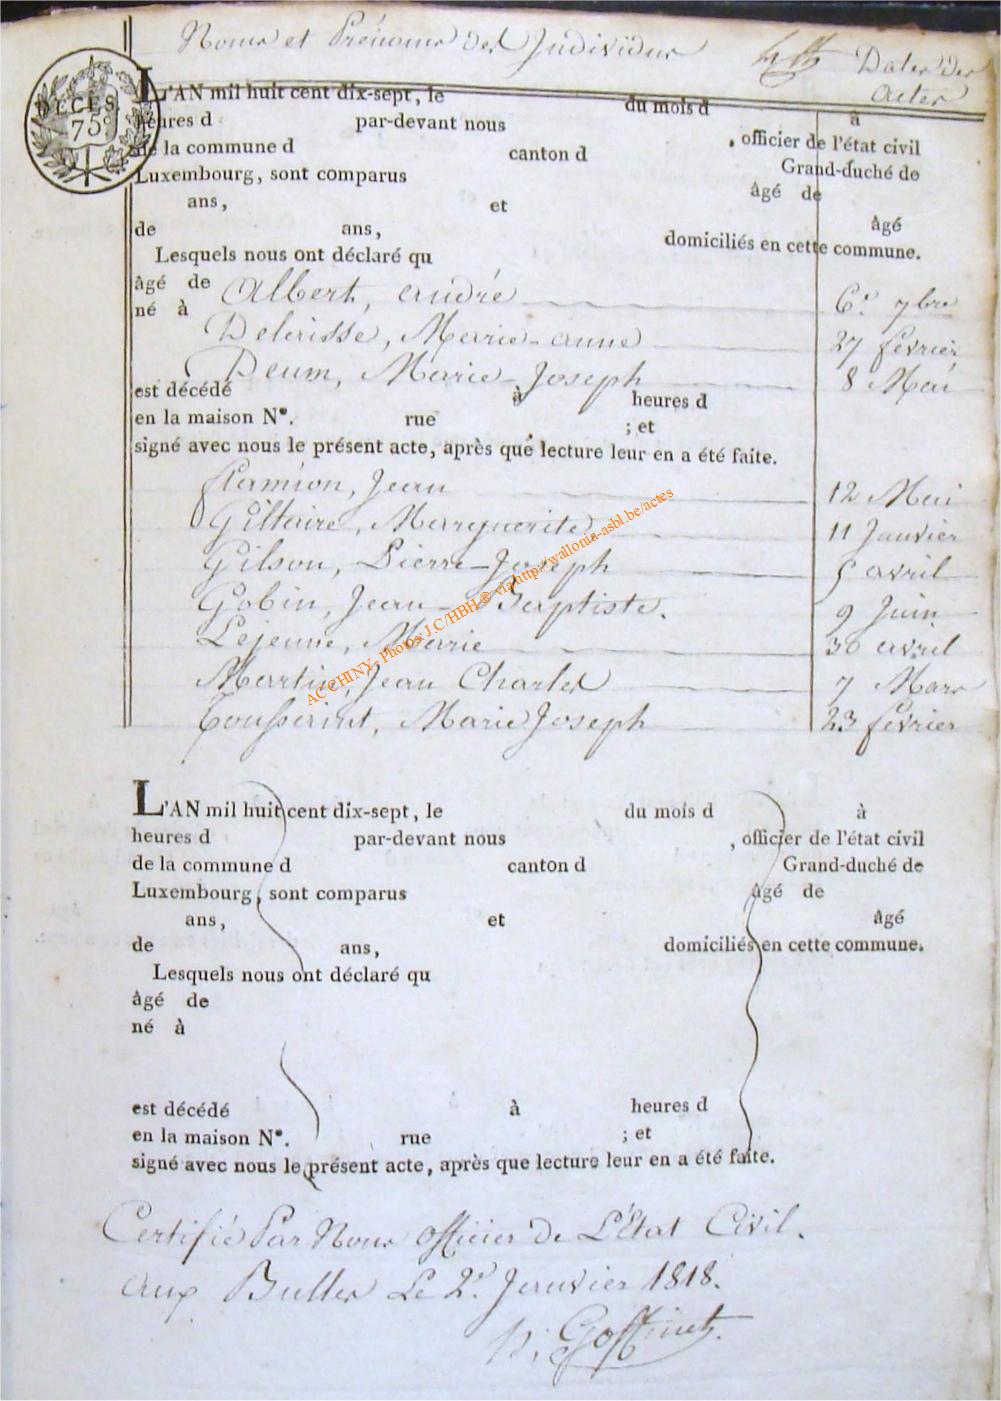 Noms et Prénoms des Individus Dates des
actes
DÉCÈS
75
L'AN mil huit cent dix-sept, le du mois d à
heures d par-devant nous , officier de l'état civil
de la commune d canton d Grand-duché de
Luxembourg, sont comparus âgé de
ans, et âgé
de ans, domiciliés en cette commune.
Lesquels nous ont déclaré qu
âgé de Albert, andré 6. 7bre
né à
Delaisse, Marie-anne 27 fevrier
Deum, Marie-Joseph 8 Mai
est décédé à heures d
en la maison N°. rue ; et
signé avec nous le présent acte, après que lecture leur en a été faite.
flamion, Jean 12 Mai
Giltaire, Marguerite 11 Janvier
Gilson, Pierre-Joseph 5 avril
Gobin, Jean-Baptiste. 9 Juin
Lejeune, Marie 30 avril
Martin, Jean Charles 7 Mars
Toussaint, Marie Joseph 23 fevrier
AC CHINY - Photos: J.C/HBH® via http://wallonia-asbl.be/actes
L'AN mil huit cent dix-sept, le du mois d à
heures d par-devant nous , officier de l'état civil
de la commune d canton d Grand-duché de
Luxembourg, sont comparus âgé de
ans, et âgé
de ans, domiciliés en cette commune.
Lesquels nous ont déclaré qu
âgé de
né à
est décédé à heures d
en la maison N°. rue ; et
signé avec nous le présent acte, après que lecture leur en a été faite.
Certifié Par Nous officier De L'État Civil.
aux Bulles Le 2. Janvier 1818.
Goffinet